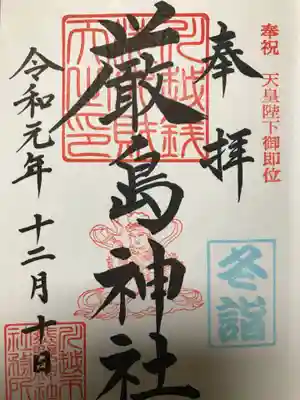 奉祝 天皇陛下御即位
奉拝
冬詣
厳島神社
令和元年十二月十日